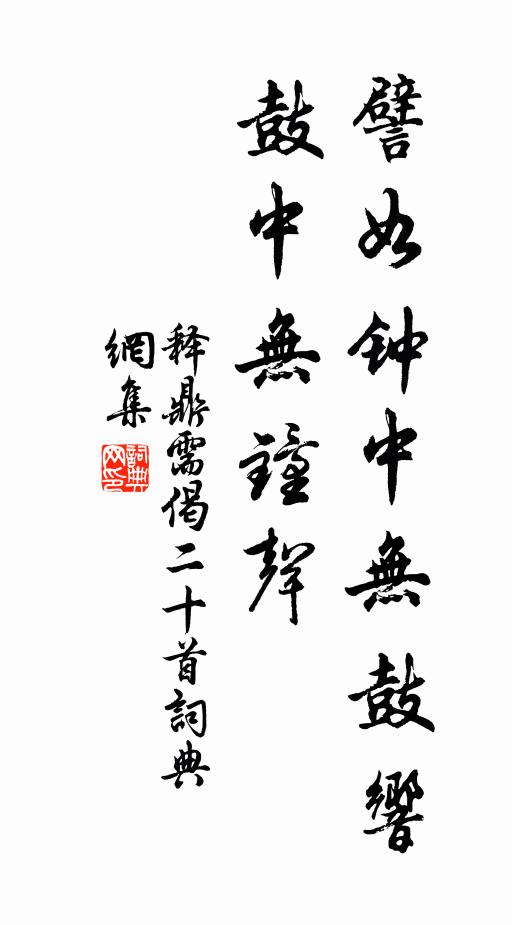 譬如钟中無鼓響
鼓中無鐘聲
释鼎需偈二十首詞典
網集
詞典網印